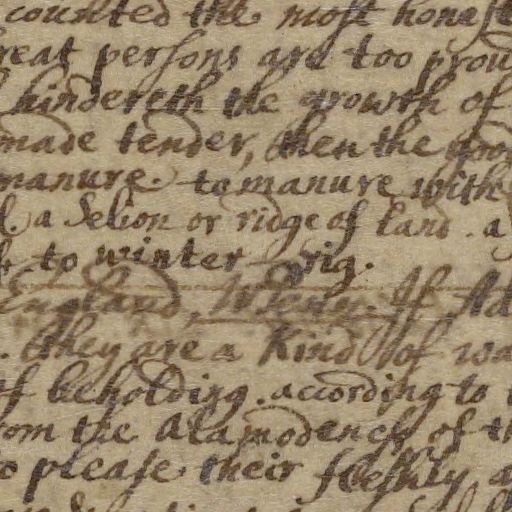 counted the most honest
reat persons are too prou
hindereth the growth of
made tender, then the
manure. to manure with
a Selion or ridge of land. a
to winter rig.
England, If
. they are a Kind of wa
of beholding. according to
rom the Alamodeness of th
o please their fleshly a